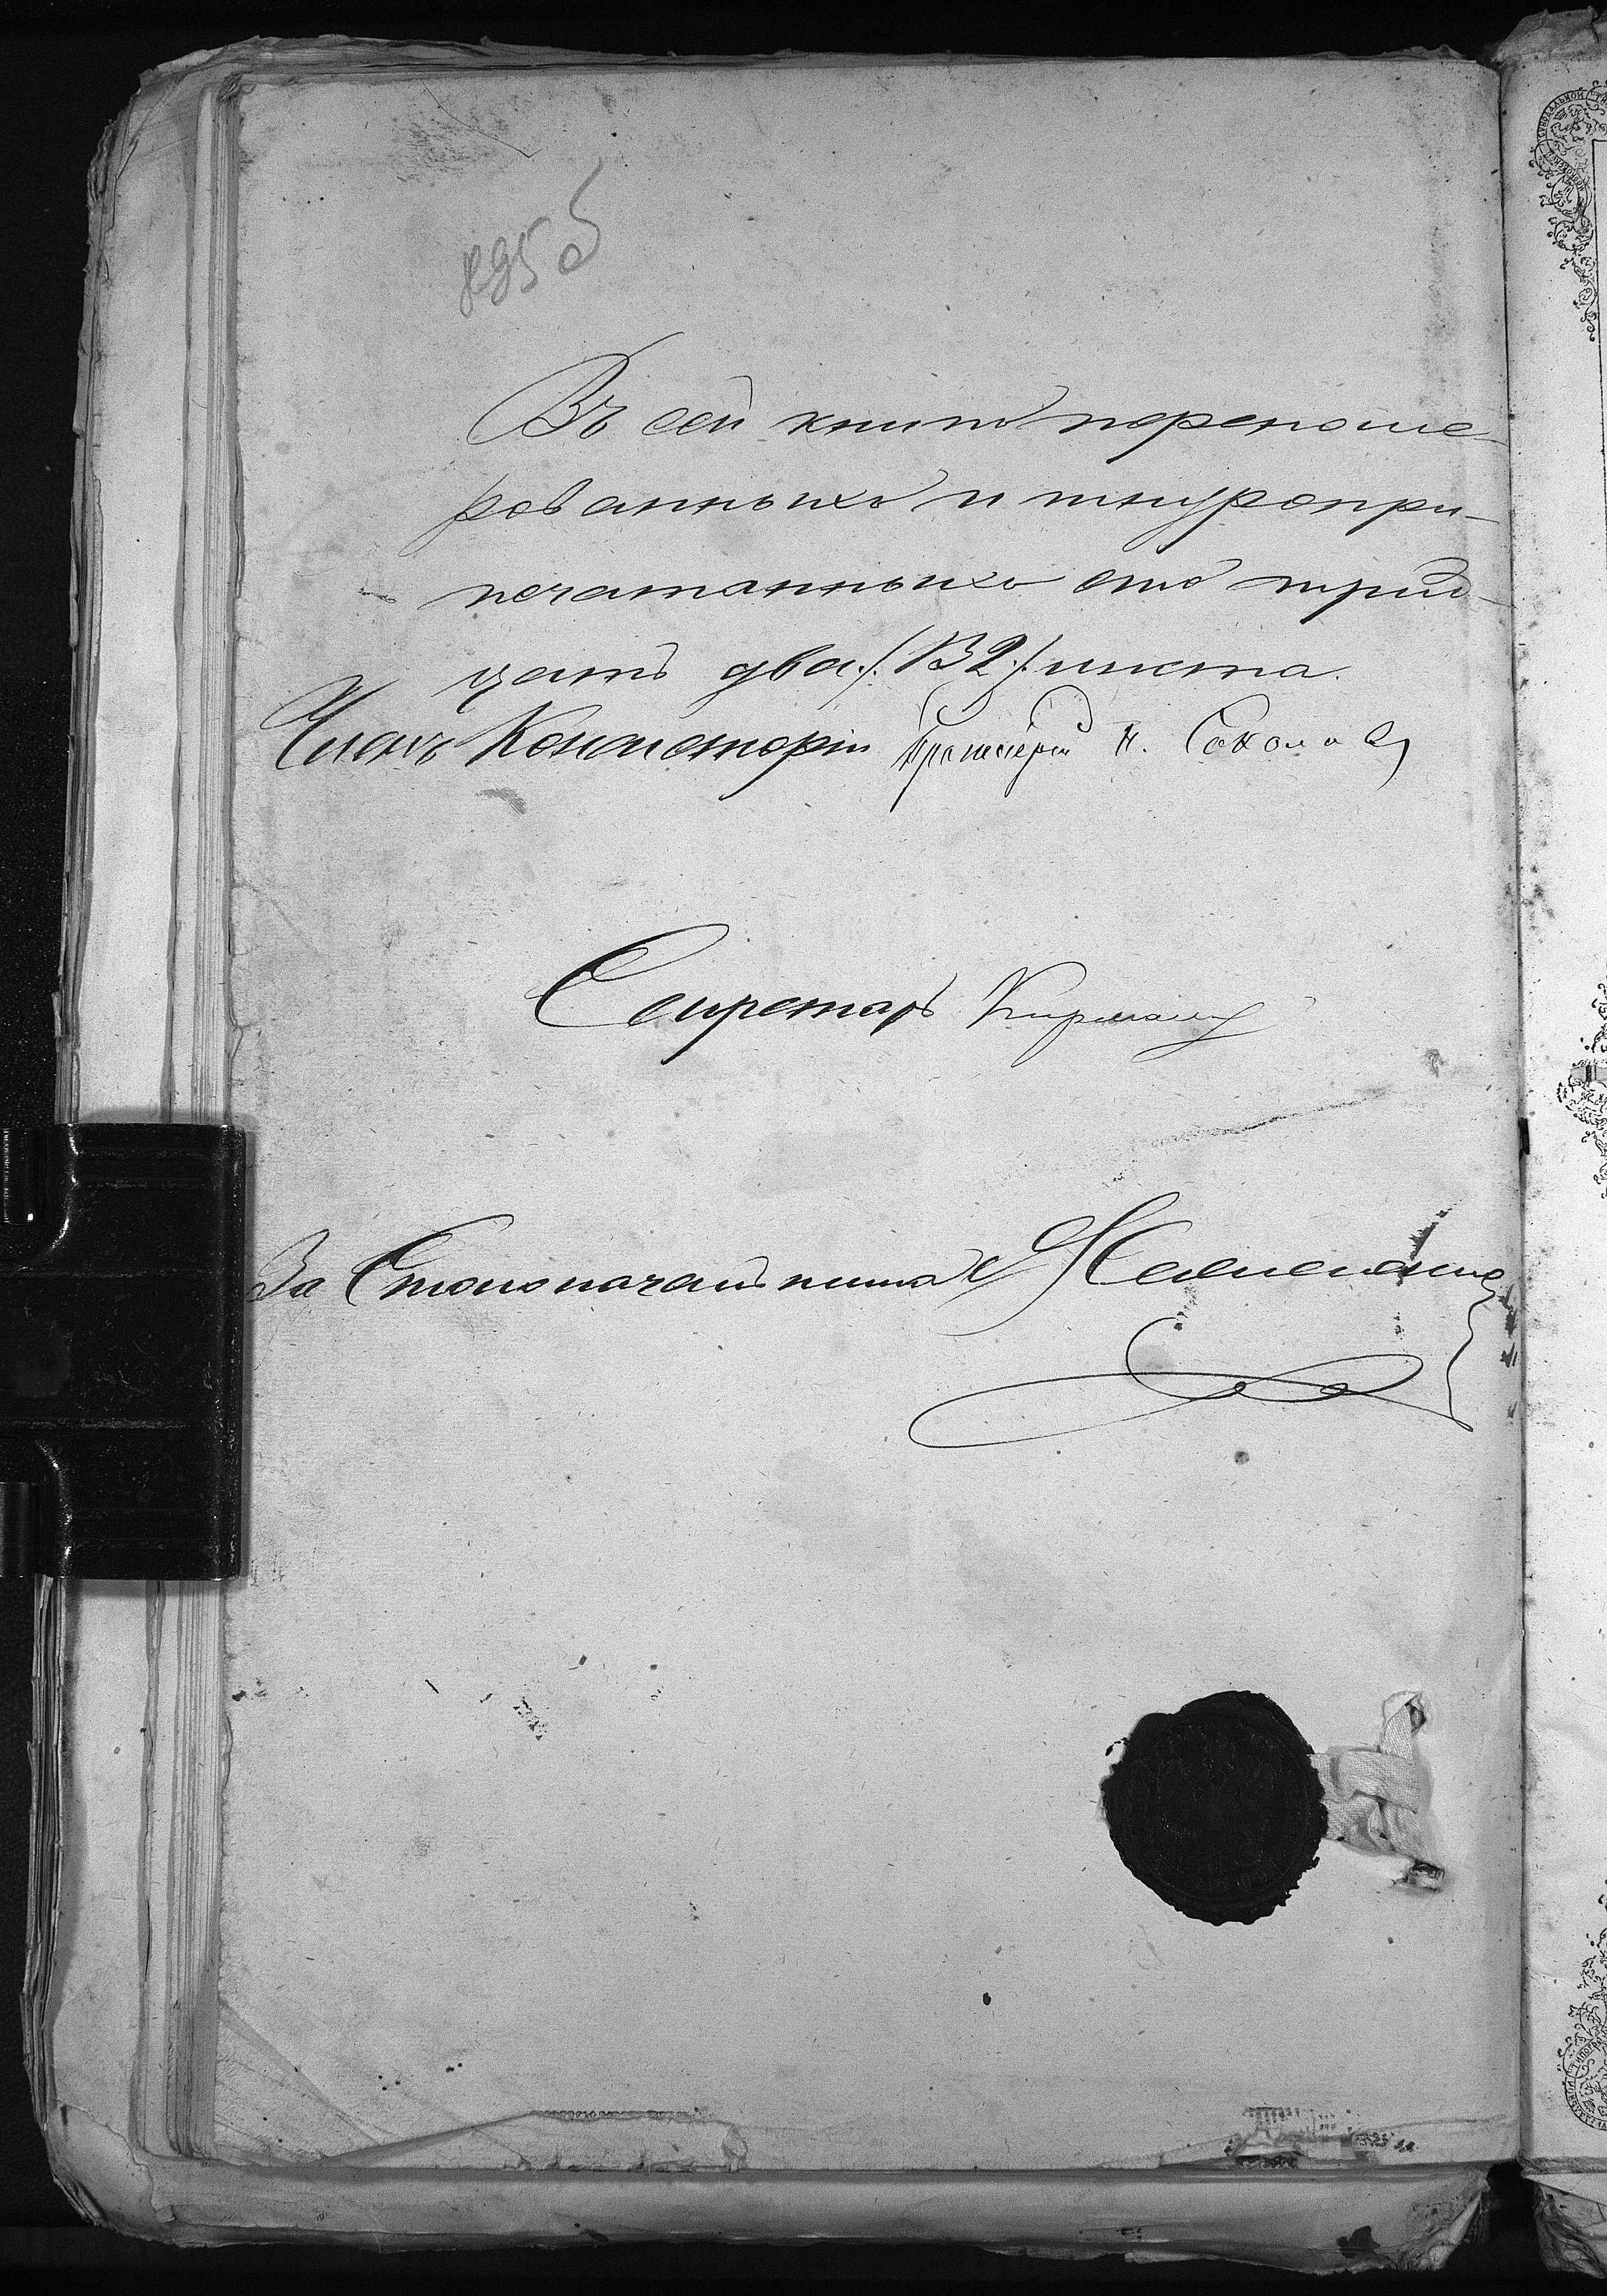 Въ сей книгѣ перенуме-
рованныхъ и шнуропри-
печатанныхъ сто трид-
цать два /:132:/ листа.
Членъ Консисторіи Протоіерей Н. Соколовъ
Секретарь
За Столоначальника